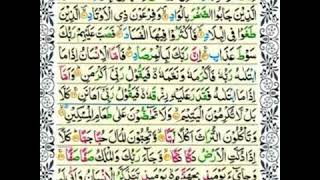 الَّذِينَ جَابُوا الصَّخْرَ بِالْوَادِ ۝ وَفِرْعَوْنَ ذِي الْأَوْتَادِ ۝ الَّذِينَ
طَغَوْا فِي الْبِلَادِ ۝ فَأَكْثَرُوا فِيهَا الْفَسَادَ ۝ فَصَبَّ عَلَيْهِمْ رَبُّكَ
سَوْطَ عَذَابٍ ۝ إِنَّ رَبَّكَ لَبِالْمِرْصَادِ ۝ فَأَمَّا الْإِنْسَانُ إِذَا مَا
ابْتَلٰىهُ رَبُّهُ فَأَكْرَمَهُ وَنَعَّمَهُ فَيَقُولُ رَبِّي أَكْرَمَنِ ۝ وَأَمَّا
إِذَا مَا ابْتَلٰىهُ فَقَدَرَ عَلَيْهِ رِزْقَهُ فَيَقُولُ رَبِّي أَهَانَنِ ۝ كَلَّا
بَلْ لَا تُكْرِمُونَ الْيَتِيمَ ۝ وَلَا تَحٰضُّونَ عَلٰى طَعَامِ الْمِسْكِينِ ۝
وَتَأْكُلُونَ التُّرَاثَ أَكْلًا لَمًّا ۝ وَتُحِبُّونَ الْمَالَ حُبًّا جَمًّا ۝ كَلَّا
إِذَا دُكَّتِ الْأَرْضُ دَكًّا دَكًّا ۝ وَجَاءَ رَبُّكَ وَالْمَلَكُ صَفًّا صَفًّا ۝
وَجِايْءَ يَوْمَئِذٍ بِجَهَنَّمَ يَوْمَئِذٍ يَتَذَكَّرُ الْإِنْسَانُ